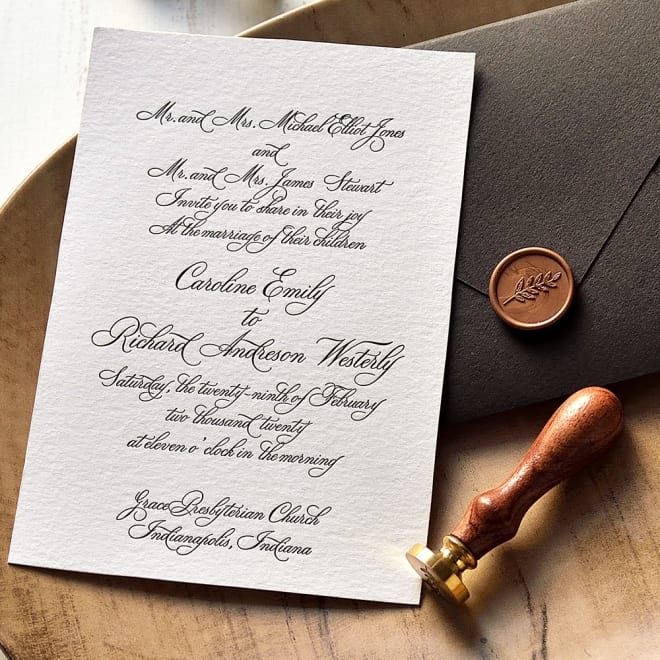 Mr. and Mrs. Michael Elliot Jones
and
Mr. and Mrs. James Stewart
Invite you to share in their joy
At the marriage of their children
Caroline Emily
to
Richard Andreson Westerly
Saturday, the twenty-ninth of February
two thousand twenty
at eleven o' clock in the morning
Grace Presbyterian Church
Indianapolis, Indiana